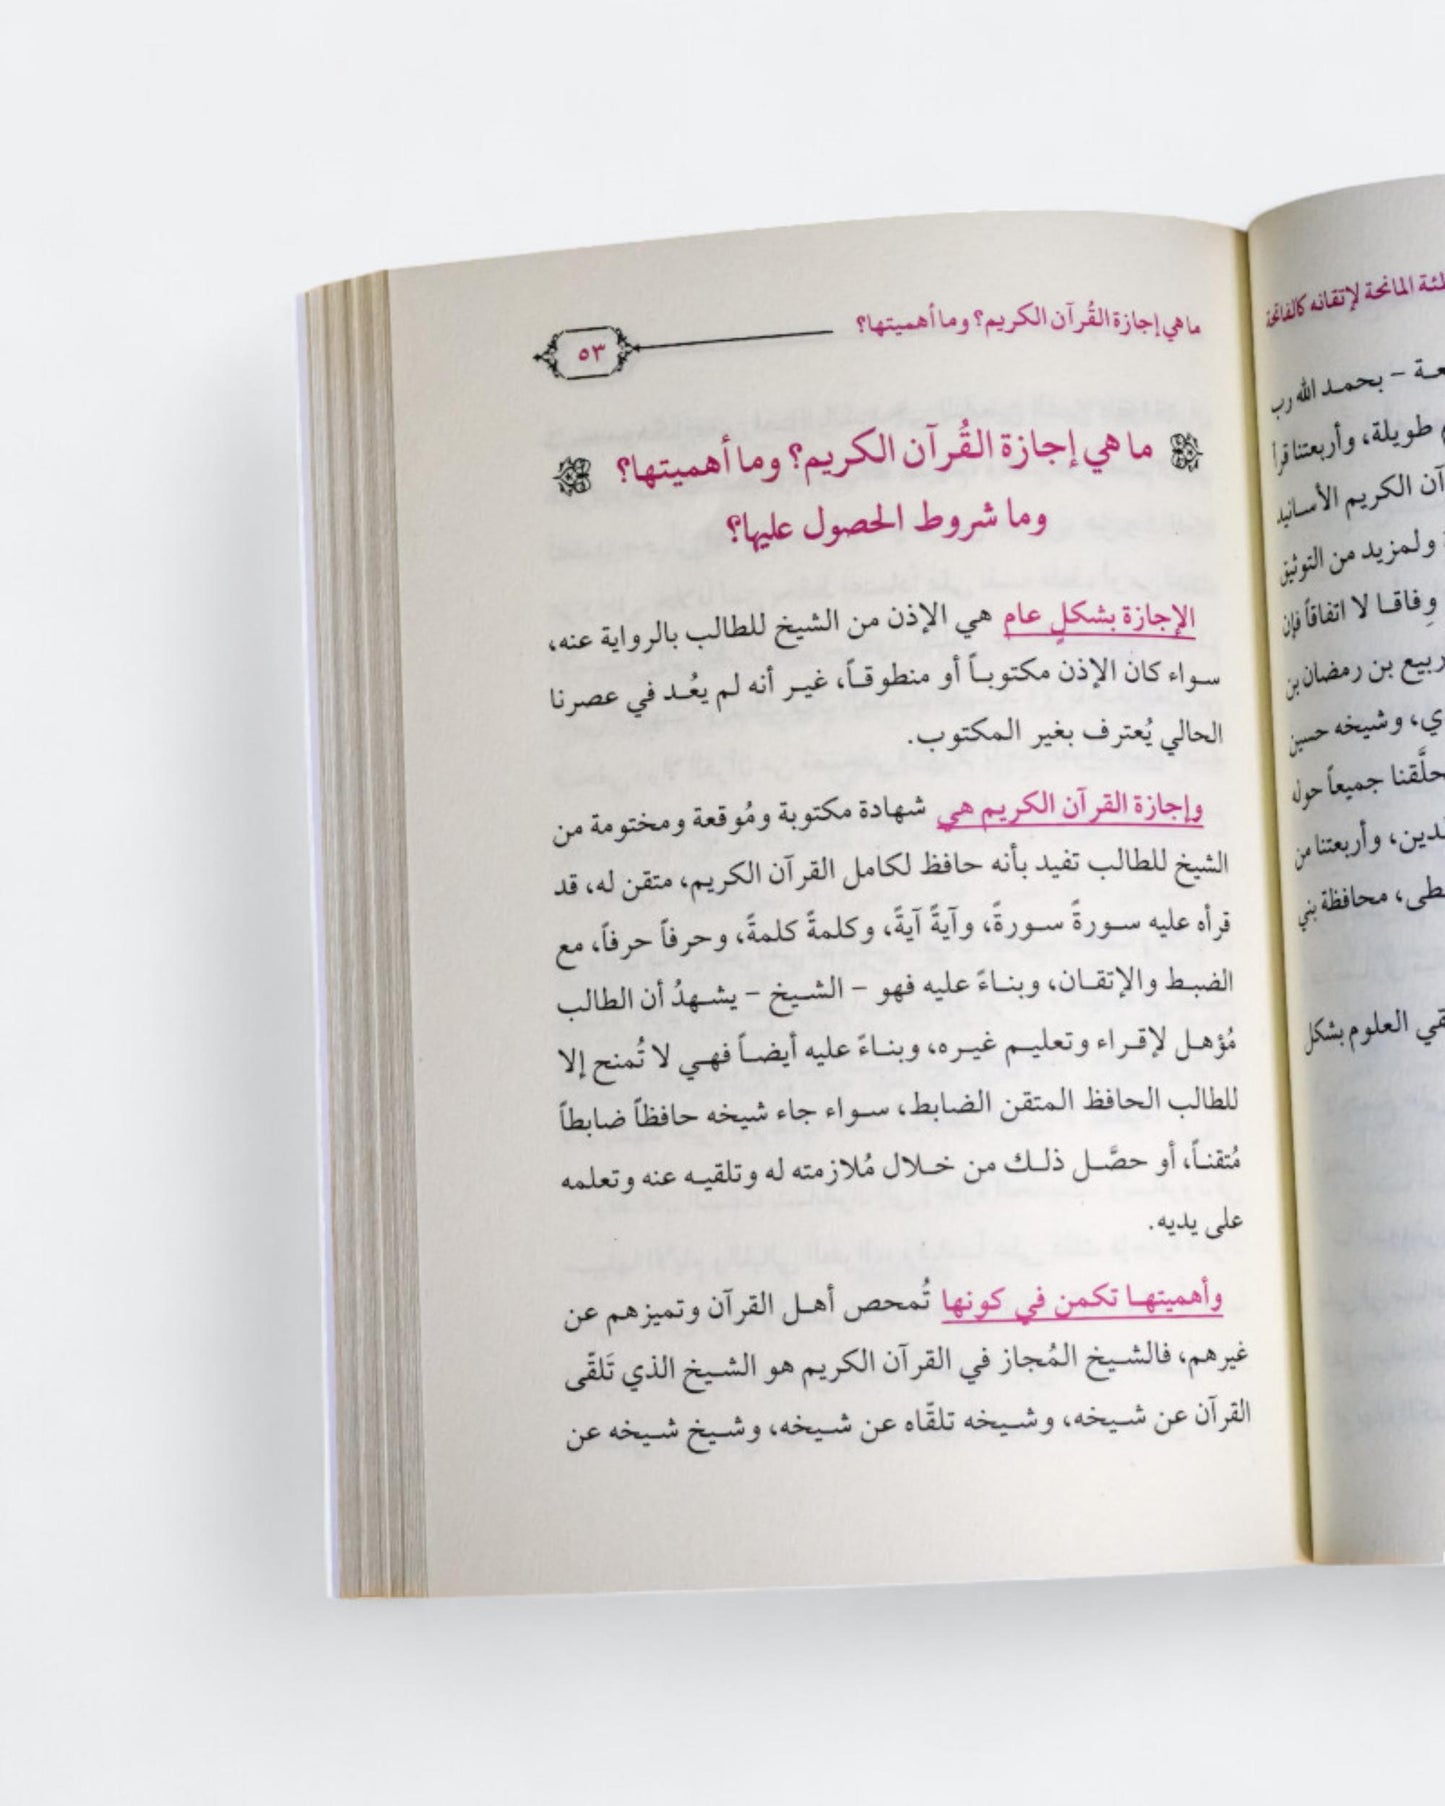 ما هي إجازة القُرآن الكريم؟ وما أهميتها؟
٥٣
ما هي إجازة القُرآن الكريم؟ وما أهميتها؟
وما شروط الحصول عليها؟
الإجازة بشكلٍ عام هي الإذن من الشيخ للطالب بالرواية عنه،
سواء كان الإذن مكتوباً أو منطوقاً، غير أنه لم يعُد في عصرنا
الحالي يُعترف بغير المكتوب.
وإجازة القرآن الكريم هي شهادة مكتوبة ومُوقعة ومختومة من
الشيخ للطالب تفيد بأنه حافظ لكامل القرآن الكريم، متقن له، قد
قرأه عليه سورةً سورةً، وآيةً آيةً، وكلمةً كلمةً، وحرفاً حرفاً، مع
الضبط والإتقان، وبناءً عليه فهو – الشيخ – يشهدُ أن الطالب
مُؤهل لإقراء وتعليم غيره، وبناءً عليه أيضاً فهي لا تُمنح إلا
للطالب الحافظ المتقن الضابط، سواء جاء شيخه حافظاً ضابطاً
مُتقناً، أو حصَّل ذلك من خلال مُلازمته له وتلقيه عنه وتعلمه
على يديه.
وأهميتها تكمن في كونها تُمحص أهل القرآن وتميزهم عن
غيرهم، فالشيخ المُجاز في القرآن الكريم هو الشيخ الذي تَلقّى
القرآن عن شيخه، وشيخه تلقّاه عن شيخه، وشيخ شيخه عن
المانحة لإتقانه
– بحمد الله رب
طويلة، وأربعتنا قرأ
الكريم الأسانيد
ولمزيد من التوثيق
وِفاقا لا اتفاقاً فإن
ربيع بن رمضان بن
وشيخه حسين
جميعاً حوله
وأربعتنا من
محافظة بني
العلوم بشكل